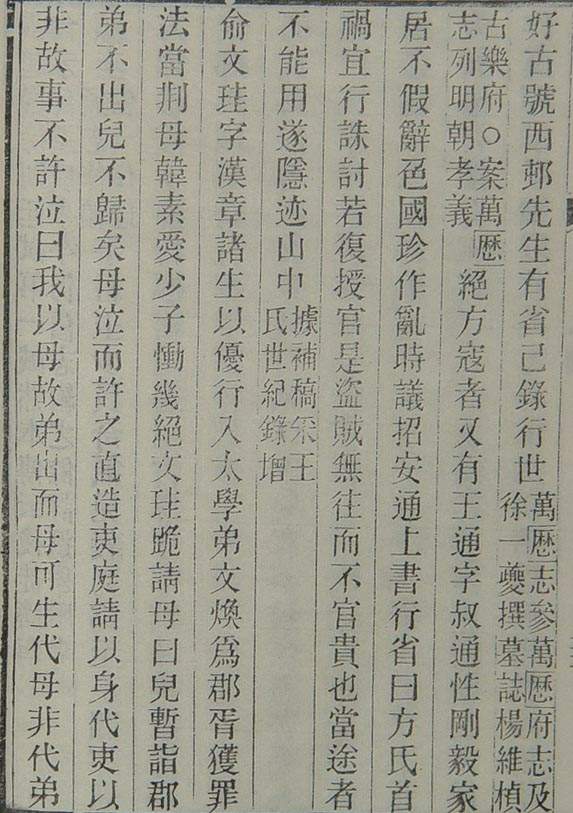 好古號西邨先生有省己錄行世萬厯志參萬厯府志及
徐一夔撰墓誌楊維楨
古樂府○案萬厯
志列明朝孝義絕方寇者又有王通字叔通性剛毅家
居不假辭色國珍作亂時議招安通上書行省曰方氏首
禍宜行誅討若復授官是盜賊無往而不官貴也當途者
不能用遂隱迹山中據補稿采王
氏世紀錄增
俞文珪字漢章諸生以優行入太學弟文煥爲郡胥獲罪
法當荆母韓素愛少子慟幾絕文珪跪請母曰兒暫詣郡
弟不出兒不歸矣母泣而許之直造吏庭請以身代吏以
非故事不許泣曰我以母故弟出而母可生代母非代弟